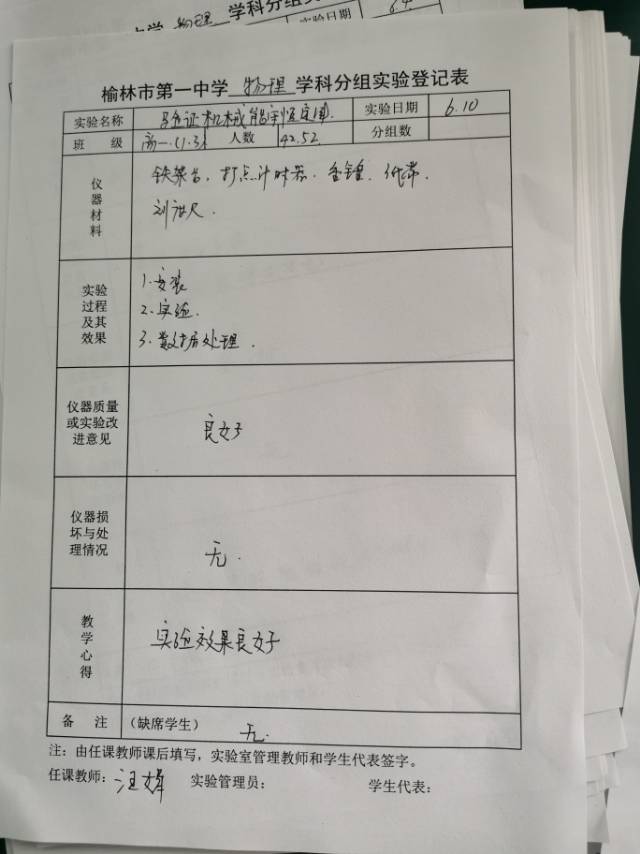 榆林市第一中学 物理 学科分组实验登记表
实验名称 验证机械能守恒定律. 实验日期 6.10
班 级 高一.(1.3) 人数 42.52 分组数
仪器材料 铁架台. 打点计时器. 重锤. 纸带.
刻度尺.
实验过程及其效果 1.安装
2.实验.
3.数据处理.
仪器质量或实验改进意见 良好
仪器损坏与处理情况 无.
教学心得 实验效果良好
备 注 (缺席学生) 无.
注：由任课教师课后填写，实验室管理教师和学生代表签字。
任课教师： 实验管理员： 学生代表：